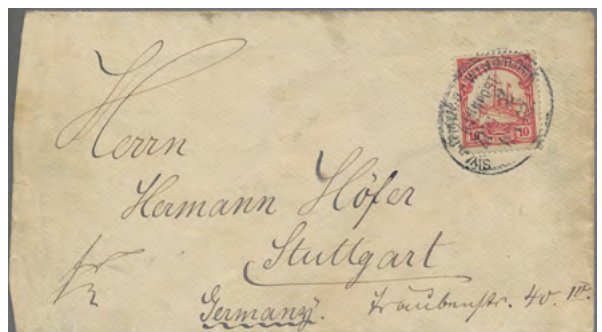 10 10
Herrn
Hermann Höfer
Stuttgart
Germany. Traubenstr. 40. III.